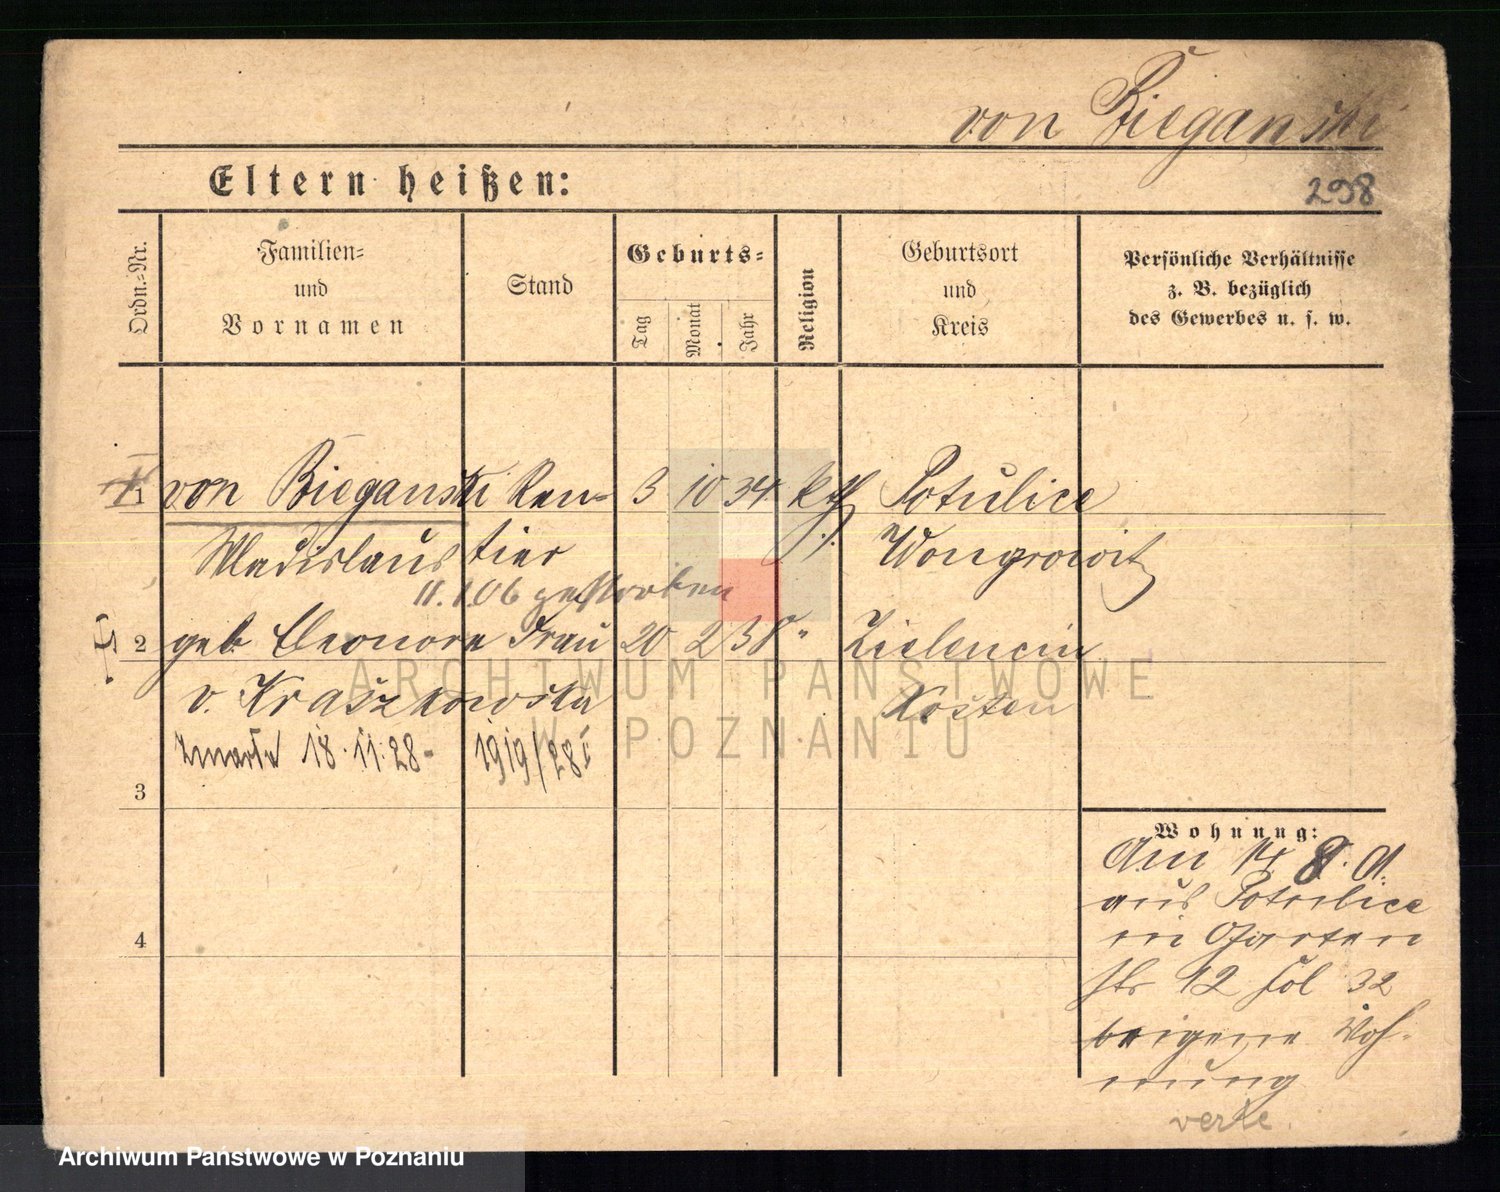 von Bieganski
Eltern heißen:
298
Ordn.-Nr.
Familien-
und
Vornamen
Stand
Geburts-
Tag
Monat
Jahr
Religion
Geburtsort
und
Kreis
Persönliche Verhältnisse
z. B. bezüglich
des Gewerbes u. s. w.
1 von Bieganski Ren- 3 10 34 kth Potulice
Wladislaus tier Wongrowitz
11.1.06 gestorben
2 geb. Eleonora Frau 20 2 38 " Zielencin
v. Kraszkowska Kosten
zmarła 18.11.28 - 1919/28
3
Wohnung:
Am 14 8. A.
aus Potulice
in Garten
str 12 fol 32
eigene Woh-
nung
verte.
4
ARCHIWUM PAŃSTWOWE
W POZNANIU
Archiwum Państwowe w Poznaniu